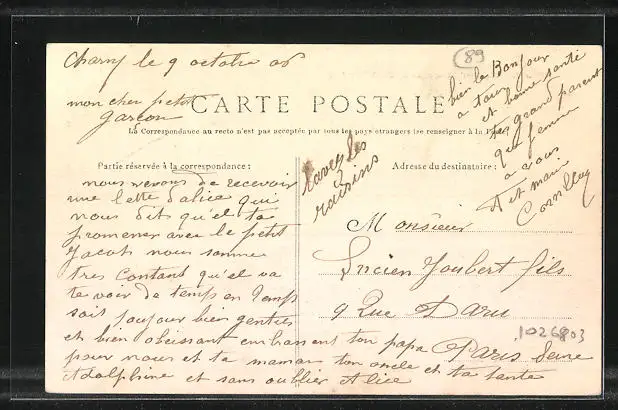 charny le 9 octobre 06
mon cher petit
garcon
CARTE POSTALE
La Correspondance au recto n'est pas acceptée par tous les pays étrangers (se renseigner à la
89
bien le Bonjour
a tous
et bonne santé
tes grand parent
qui
a vous
lavey les
raisins
Partie réservée à la correspondance :
nous venons de recevoir
une lette dalice qui
nous dit qu'el ta
promener avec le petit
Jacob nous somme
tres contant qu'el va
te voir de temps en temps
soit toujour bien gentis
et bien obeissant embrassent ton papa
pour nous et ta maman ton oncle et ta tante
Adolphine et sans oublier Alice
Adresse du destinataire :
Monsieur
Lucien Joubert fils
9 Rue Daru
Paris Seine
1026803